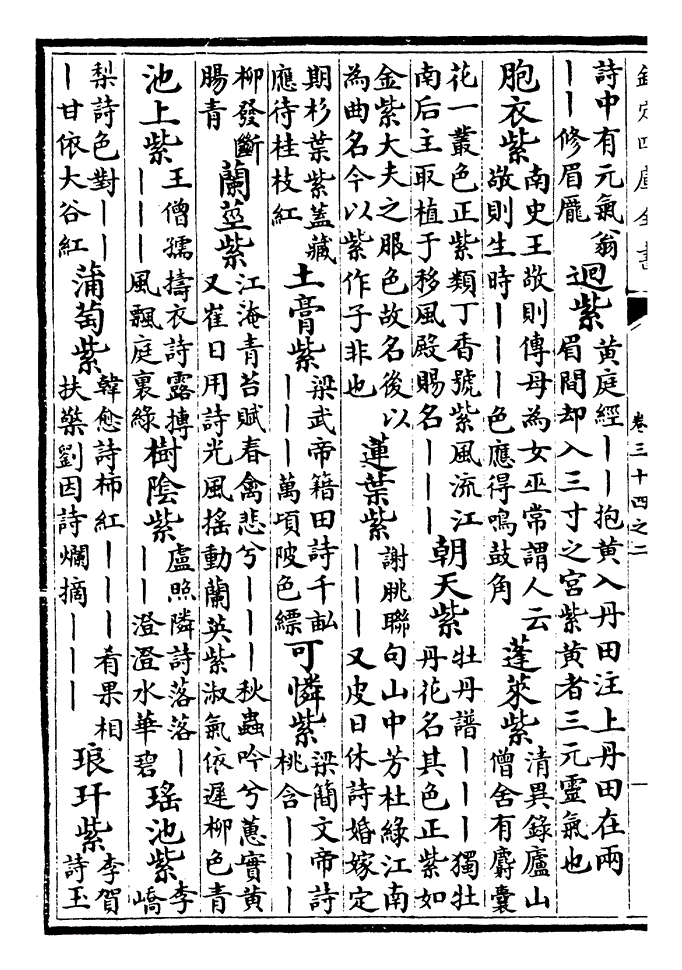 欽定四庫全書
卷三十四之二
詩中有元氣翁
——修眉龎
迥紫
黄庭經——抱黄入丹田注上丹田在兩
眉間却入三寸之宫紫黄者三元靈氣也
胞衣紫
南史王敬則傳母為女巫常謂人云
敬則生時———色應得鳴鼓角
蓬萊紫
清異錄廬山
僧舍有麝囊
花一叢色正紫類丁香號紫風流江
南后主取植于移風殿賜名———
朝天紫
牡丹譜———獨牡
丹花名其色正紫如
金紫大夫之服色故名後以
為曲名今以紫作子非也
蓮葉紫
謝朓聯句山中芳杜綠江南
———又皮日休詩婚嫁定
期杉葉紫蓋藏
應待桂枝紅
土膏紫
梁武帝籍田詩千畝
———萬頃陂色縹
可憐紫
梁簡文帝詩
桃含———
柳發斷
腸青
蘭莖紫
江淹青苔賦春禽悲兮———秋蟲吟兮蕙實黄
又崔日用詩光風搖動蘭英紫淑氣依遲柳色青
池上紫
王僧孺擣衣詩露摶
———風飄庭裏綠
樹陰紫
盧照隣詩落落—
——澄澄水華碧
瑤池紫
李
嶠
梨詩色對——
—甘依大谷紅
蒲萄紫
韓愈詩柿紅———肴果相
扶藥劉因詩爛摘———
琅玕紫
李賀
詩玉